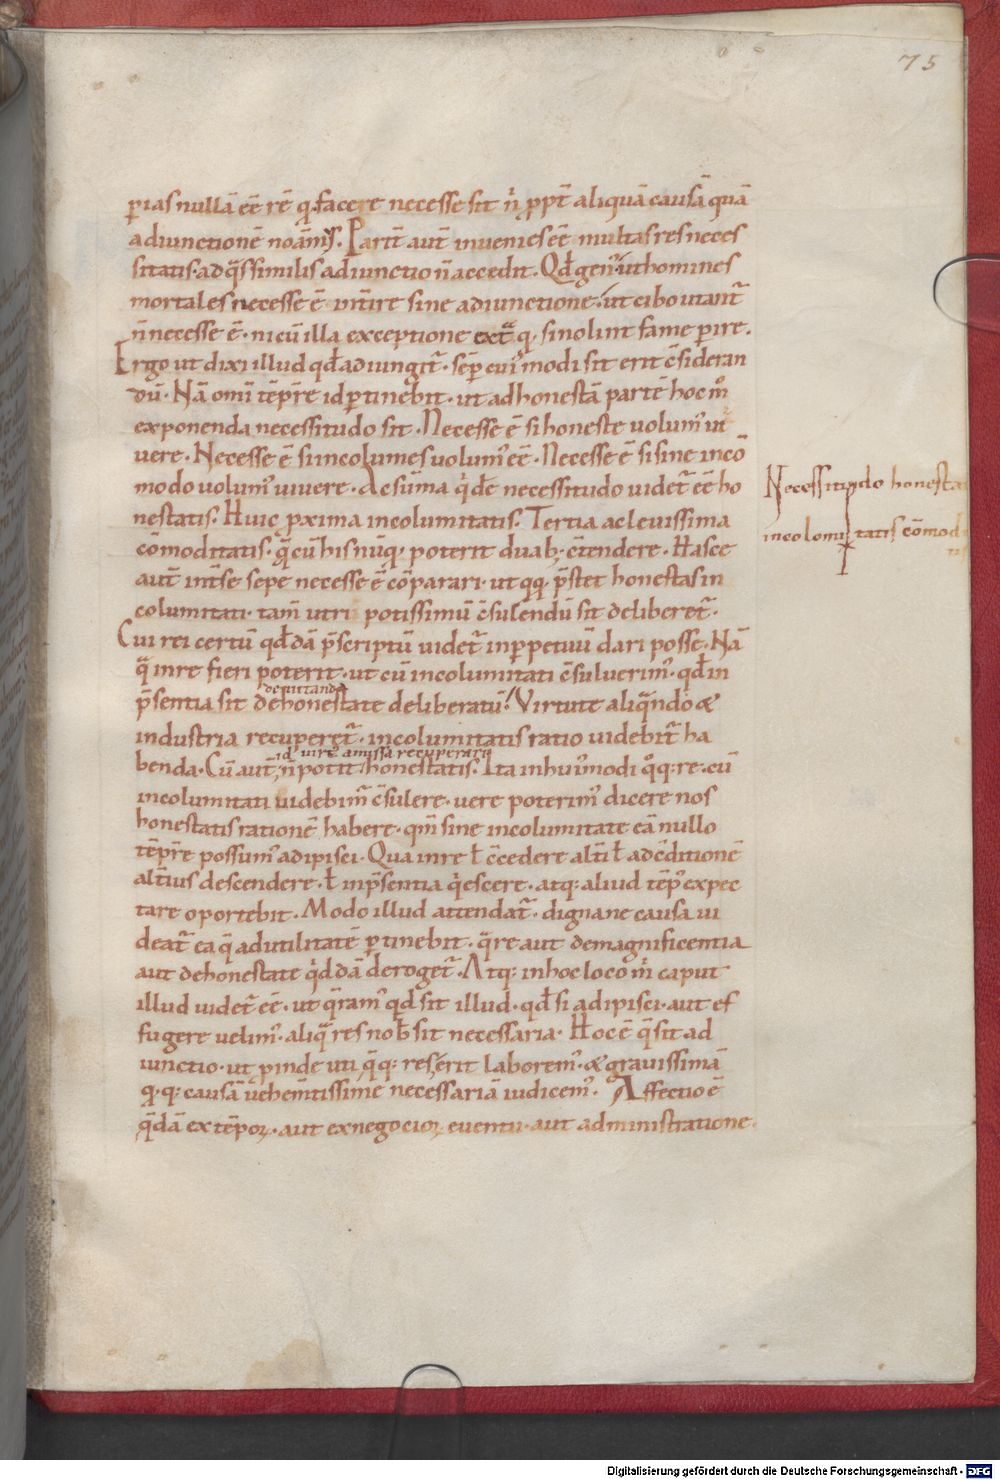 75
p̱ias nullā eē rē q̨ facere necesse sit n̄ ꝓpt̄ aliquā causā quā
adiunctionē noāmꝰ. Partī aut̄ inuenies eē multas res neces
sitatis· ad q̄s similis adiunctio n̄ accedit. Qd̄ genꝰ ut homines
mortales necesse ē int̄ire sine adiunctione· ut cibo utant̄
n̄ necesse ē· ni cū illa exceptione ext̄ q̨ si nolint fame ꝑire.
Ergo ut dixi illud qd̄ adiungit̄· sēꝑ cuiꝰmodi sit erit c̄sideran
dū· Nā omī tēp̄re id ꝑtinebit· ut ad honestā partē hoc m̊
exponenda necessitudo sit. Necesse ē si honeste uolumꝰ ui
uere. Necesse ē si incolumes uolumꝰ eē. Necesse ē si sine inco
modo uolumꝰ uiuere. Ac sūma q̇dē necessitudo uidet̄ eē ho
nestatis. Huic ꝓxima incolumitatis. Tertia ac leuissima
cōmoditatis· q̄ cū his nūq̨ poterit duab; c̄tendere. Hasce
aut̄ int̄ se sepe necesse ē cōparari· ut qq̨ p̄stet honestas in
columitati· tam̄ utri potissimū c̄sulendū sit deliberet̄.
Cui rei certū qd̄dā p̄scriptū uidet̄ in ꝑpetuū dari posse. Nā
q̄ in re fieri poterit· ut cū incolumitati c̄suluerimꝰ· qd̄ in
p̄sentia sit de honestate deliberatū· Virtute aliq̄ndo &
industria recuperet̄· incolumitatis ratio uidebit̄ ha
id ... amissa recuperari
benda. Cū aut̄ n̄ potit honestatis. Ita in huiꝰmodi q̊q: re· cū
incolumitati uidebim̄ c̄sulere· uere poterimꝰ dicere nos
honestatis rationē habere· qm̄ sine incolumitate eā nullo
tēp̄re possumꝰ adipisci. Qua in re ł c̄cedere alt̄i ł ad c̄ditionē
alt̄ius descendere· ł in p̄sentia q̇escere· atq: aliud tēpꝰ expec
tare oportebit. Modo illud attendat̄· dignane causa ui
deat̄ ea q̄ ad utilitatē ꝑtinebit· q̄re aut de magnificentia
aut de honestate q̇ddā deroget̄. Atq: in hoc loco ṁ caput
illud uidet̄ eē· ut q̄ramꝰ qd̄ sit illud· qd̄ si adipisci· aut ef
fugere uelimꝰ· aliq̄ res nob̄ sit necessaria. Hoc ē q̄ sit ad
iunctio· ut ꝓinde uti q̄q: res erit laboremꝰ· & grauissimā
q̨q: causā uehem̄tissime necessariā iudicemꝰ. Affectio ē
q̄dā ex tēpoꝝ· aut ex negocioꝝ euentu· aut administratione·
Necessitudo honesta
incolomitatis cōmod